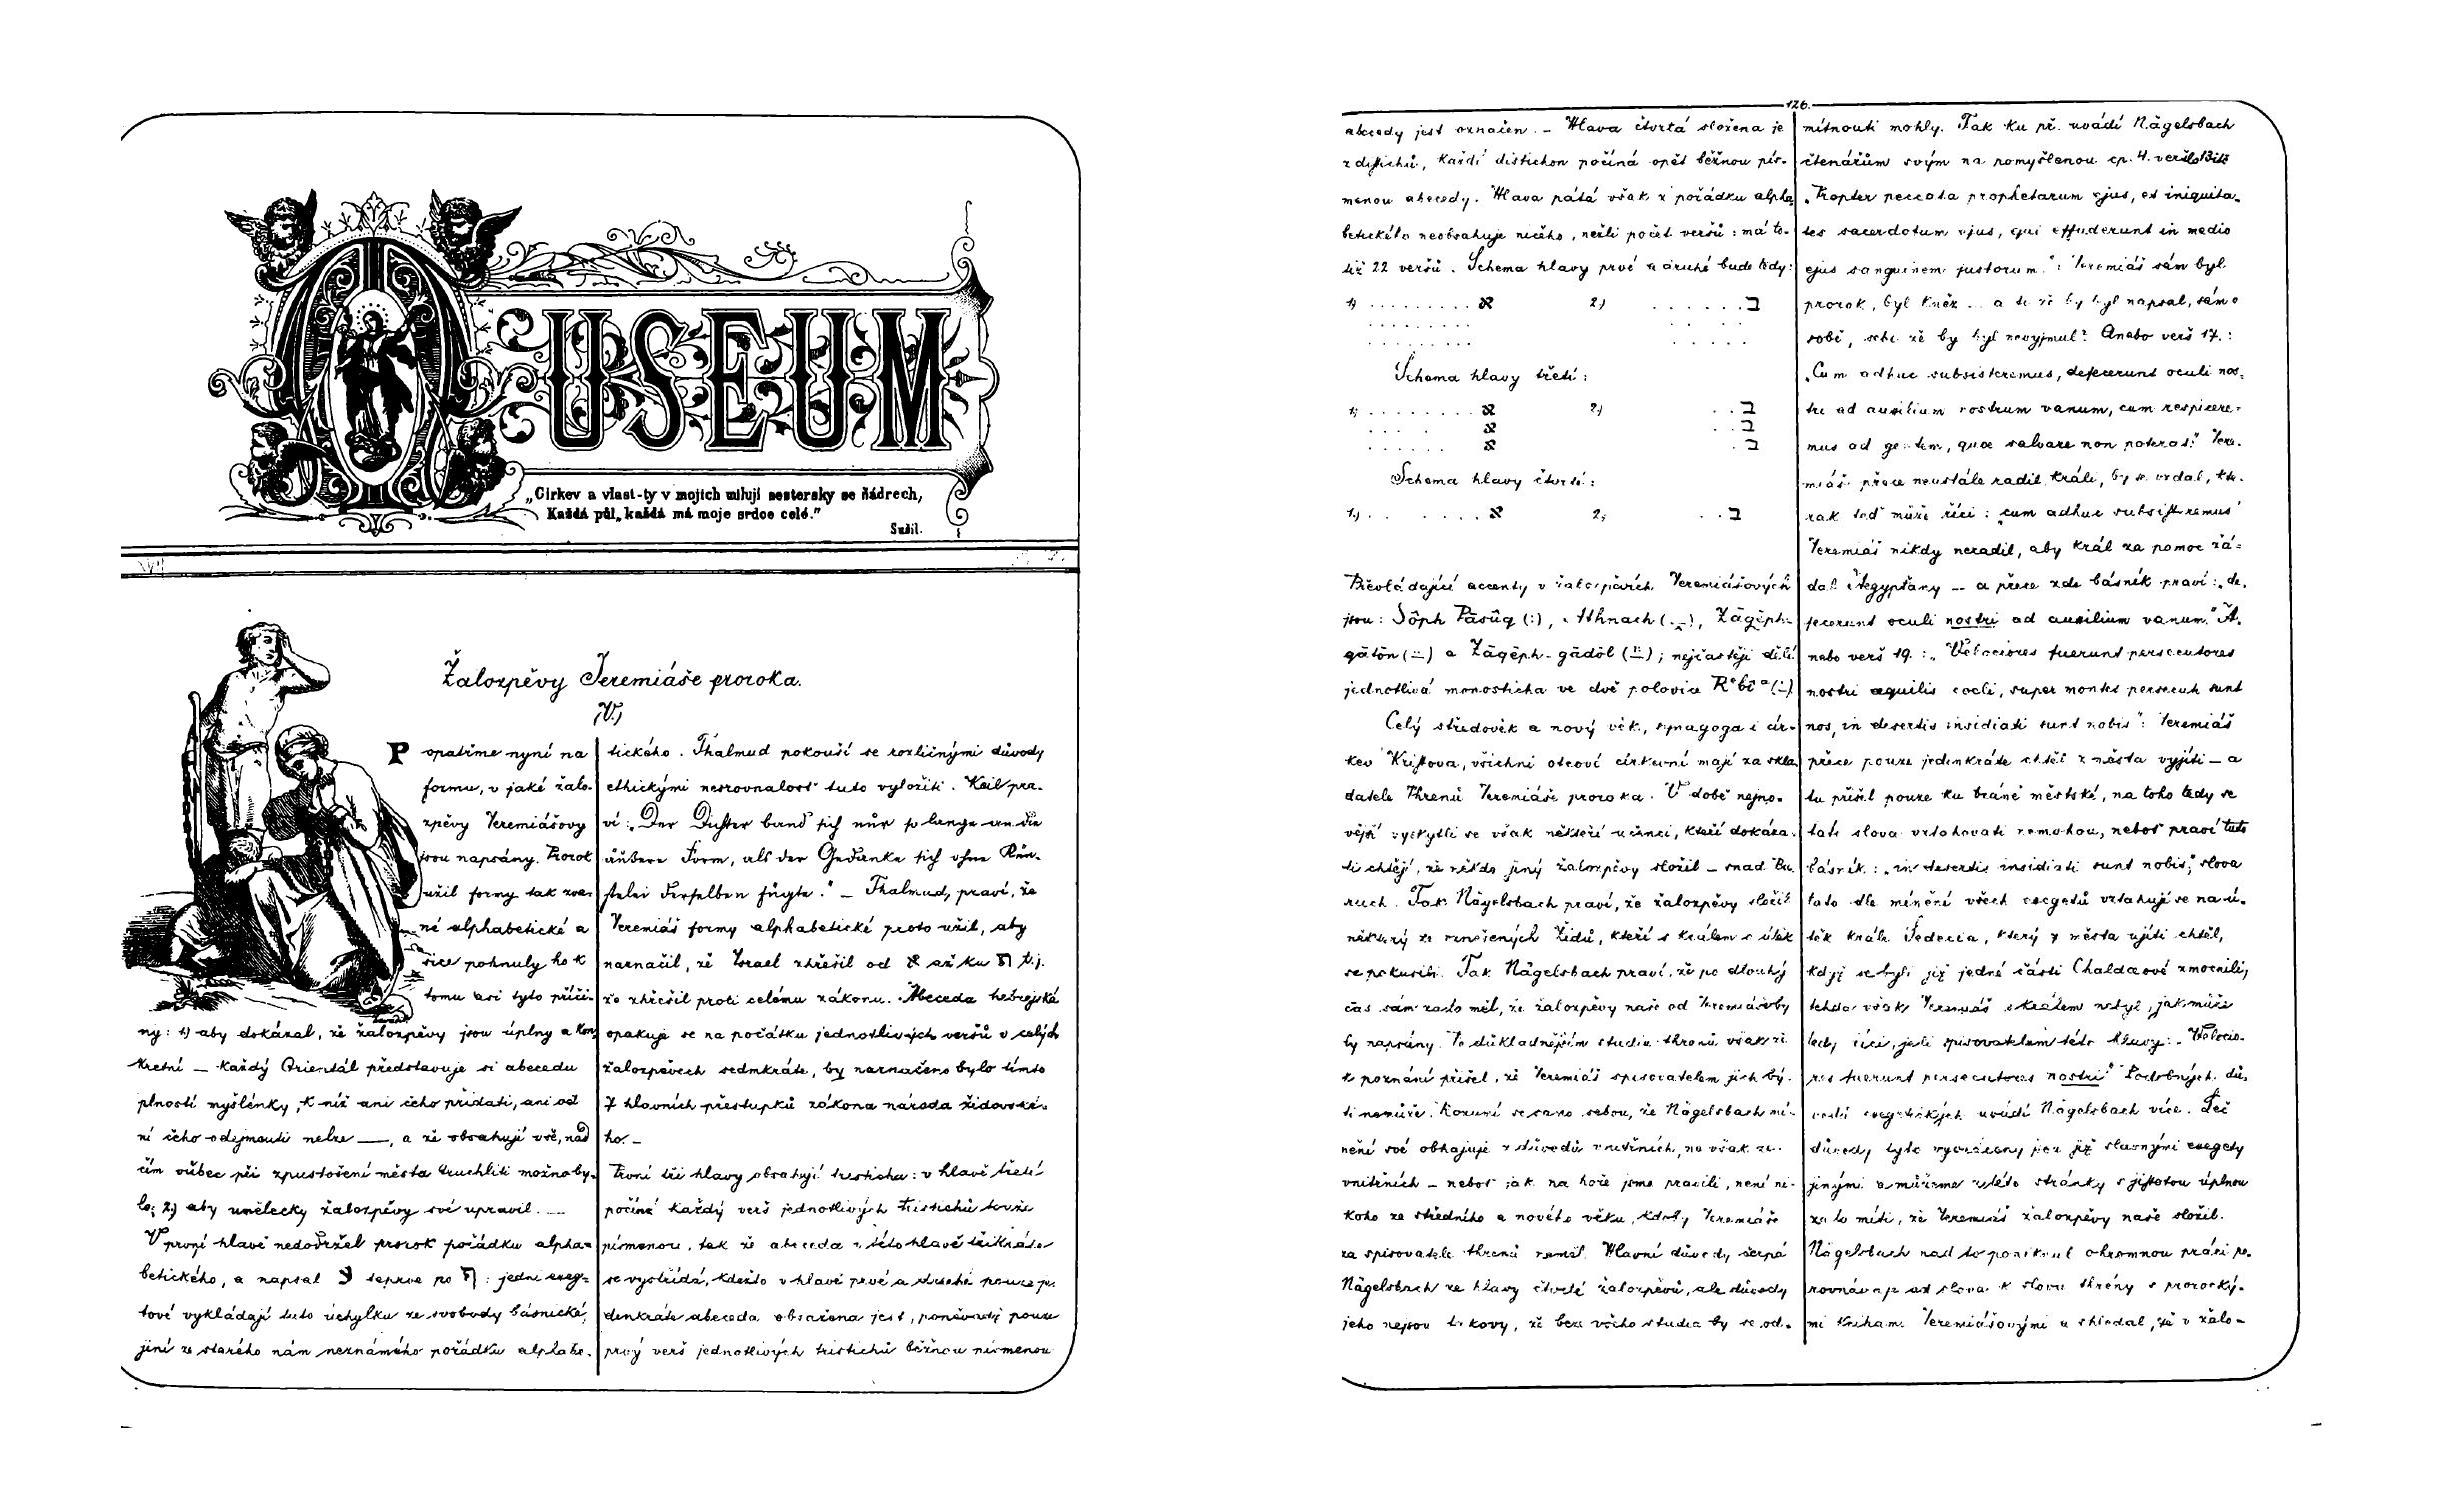 MUSEUM
„Církev a vlast-ty v mojích milují sestersky se ňádrech,
Každá půl, každá má moje srdce celé."
Sušil.
Žalozpěvy Jeremiáše proroka.
IV.)
Popatřme nyní na
formu, v jaké žalo-
zpěvy Jeremiášovy
jsou napsány. Prorok
užil formy tak zva-
né alphabetické a
sice pohnuly ho k
tomu asi tyto příči-
ny: 1) aby dokázal, že žalozpěvy jsou úplny a kon-
kretní — každý Orientál představuje si abecedu
plností myšlénky, k níž ani čeho přidati, ani od
ní čeho odejmouti nelze —, a že obsahují vše, nad
čím vůbec při zpustošení města truchliti možno by-
lo; 2.) aby umělecky žalozpěvy své upravil. —
V první hlavě nedodržel prorok pořádku alpha-
betického, a napsal פ teprve po ע: jedni exeg-
tové vykládají tuto úchylku ze svobody básnické,
jiní ze starého nám neznámého pořádku alphabe-
tického. Thalmud pokouší se rozličnými důvody
ethickými nesrovnalost tuto vyložiti. Keil pra-
ví: „Der Dichter band sich nur so lange an die
äußere Form, als der Gedanke sich ohne Kün-
stelei derselben fügte." — Thalmud, praví, že
Jeremiáš formy alphabetické proto užil, aby
naznačil, že Israel zhřešil od א až ku ת t.j.
že zhřešil proti celému zákonu. Abeceda hebrejská
opakuje se na počátku jednotlivých veršů v celých
žalozpěvech sedmkráte, by naznačeno bylo tímto
7 hlavních přestupků zákona národa židovské-
ho. —
První tři hlavy obsahují tristicha: v hlavě třetí
počíná každý verš jednotlivých tristichů touže
písmenou, tak že abeceda v této hlavě třikráte
se vystřídá, kdežto v hlavě prvé a druhé pouze je-
denkráte abeceda obsažena jest, poněvadž pouze
prvý verš jednotlivých tristichů běžnou písmenou
126.
abecedy jest označen. — Hlava čtvrtá složena je
z distichů, každé distichon počíná opět běžnou pís-
menou abecedy. Hlava pátá však z pořádku alpha
betického neobsahuje ničeho, nežli počet veršů: má to-
tiž 22 veršů. Schema hlavy prvé a druhé bude tedy:
1) . . . . . . . . . א 2) . . . . . . ב
. . . . . . . . . . . . .
. . . . . . . . . . . . .
Schema hlavy třetí:
1) . . . . . . . . א 2) . . ב
. . . . א . . ב
. . . . . . א . ב
Schema hlavy čtvrté:
1.) . . . . . . א 2) . . ב
Převládající accenty v žalozpěvích Jeremiášových
jsou: Sôph Pāsûq (:), Athnach, Zāqēph-
qātōn a Zāqēph-gādōl; nejčastěji dělí
jednotlivá monosticha ve dvě polovice Rebîa
Celý středověk a nový věk, synagoga i cír-
kev Kristova, všichni otcové církevní mají za skla
datele Threnů Jeremiáše proroka. V době nejno-
vější vyskytli se však někteří učenci, kteří dokáza-
ti chtějí, že někdo jiný žalozpěvy složil — snad Ba-
ruch. Tak Nägelsbach praví, že žalozpěvy složil
některý ze vznešených Židů, kteří s králem o útěk
se pokusili. Tak Nägelsbach praví, že po dlouhý
čas sám za to měl, že žalozpěvy naše od Jeremiáše by-
ly napsány. Po důkladnějším studiu threnů však že
k poznání přišel, že Jeremiáš spisovatelem jich bý-
ti nemůže. Rozumí se samo sebou, že Nägelsbach mí-
nění své obhajuje z důvodů vnitřních, ne však ze-
vnitřních — neboť jak na hoře jsme pravili, není ni-
koho ze středního a nového věku, kdož by Jeremiáše
za spisovatele threnů neměl. Hlavní důvody čerpá
Nägelsbach ze hlavy čtvrté žalozpěvů, ale důvody
jeho nejsou takovy, že bez všeho studia by se od-
mítnouti mohly. Tak ku př. uvádí Nägelsbach
čtenářům svým na pomyšlenou cp. 4. verš 13:
„Propter peccata prophetarum ejus, et iniquita-
tes sacerdotum ejus, qui effuderunt in medio
ejus sanguinem justorum.": Jeremiáš sám byl
prorok, byl kněz .. a to že by byl napsal, sám o
sobě, sebe že by byl nevyjmul? Anebo verš 17.:
„Cum adhuc subsisteremus, defecerunt oculi nos-
tri ad auxilium nostrum vanum, cum respicere-
mus ad gentem, quae salvare non poterat." Jere-
miáš přece neustále radil králi, by se vzdal, kte-
rak teď může říci: „cum adhuc subsisteremus"
Jeremiáš nikdy neradil, aby král za pomoc žá-
dal Aegypťany — a přece zde básník praví: „de-
fecerunt oculi nostri ad auxilium vanum." A-
nebo verš 19.: „Velociores fuerunt persecutores
nostri aquilis coeli, super montes persecuti sunt
nos, in desertis insidiati sunt nobis": Jeremiáš
přece pouze jedenkráte chtěl z města vyjíti — a
tu přišel pouze ku bráně městské, na toho tedy se
tato slova vztahovati nemohou, neboť praví tuto
básník: „in desertis insidiati sunt nobis," slova
tato dle mínění všech exegetů vztahují se na ú-
těk krále Sedecia, který z města ujíti chtěl,
když se byli již jedné části Chaldaeové zmocnili,
tehda však Jeremiáš s králem nebyl, jak může
tedy říci, je-li spisovatelem této hlavy: „Velocio-
res fuerunt persecutores nostri" Podobných dů-
vodů exegetických uvádí Nägelsbach více. Leč
důvody tyto vyvráceny jsou již slavnými exegety
jinými a můžeme z této stránky s jistotou úplnou
za to míti, že Jeremiáš žalozpěvy naše složil.
Nägelsbach nad to podniknul ohromnou práci po-
rovnávaje od slova k slovu thrény s prorocký-
mi knihami Jeremiášovými a shledal, že v žalo-